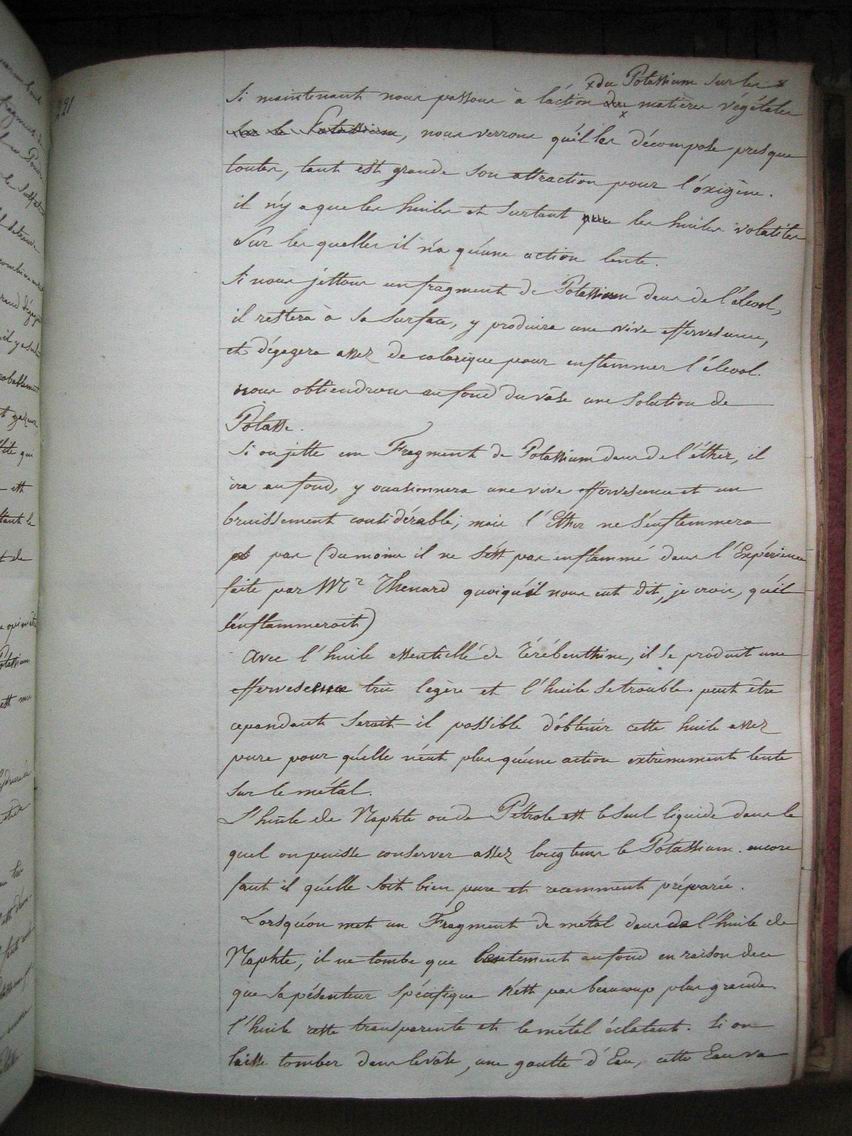 221
x du Potassium sur les x
Si maintenant nous passons à l'action des matières végétales
sur le Potassium, nous verrons qu'il les décompose presque
toutes, tant est grande son attraction pour l'oxigène.
il n'y a que les huiles et surtout que les huiles volatiles
sur lesquelles il n'a qu'une action lente.
Si nous jettons un fragment de Potassium dans de l'álcool,
il restera à sa surface, y produira une vive effervescence,
et dégagera assez de calorique pour enflammer l'álcool.
nous obtiendrons au fond du vase une solution de
Potasse.
Si on jette un Fragment de Potassium dans de l'éther, il
ira au fond, y occasionnera une vive effervescence et un
bruissement considérable; mais l'Ether ne s'enflammera
pas (du moins il ne s'est pas enflammé dans l'Expérience
faite par Mr Thenard quoiqu'il nous eut dit, je crois, qu'il
s'enflammeroit)
Avec l'huile essentielle de Térébenthine, il se produit une
effervescence très légère et l'huile se trouble. peut être
cependant seroit-il possible d'obtenir cette huile assez
pure pour qu'elle n'eut plus qu'une action extrèmement lente
sur le métal.
L'huile de Naphte ou de Pétrole est le seul liquide dans le
quel on puisse conserver assez longtems le Potassium. encore
faut il qu'elle soit bien pure et recemment préparée.
Lorsqu'on met un Fragment de métal dans de l'huile de
Naphte, il ne tombe que lentement au fond en raison de ce
que sa pésenteur spécifique n'est pas beaucoup plus grande.
l'huile reste transparente et le métal éclatant. Si on
laisse tomber dans le vase, une goutte d'Eau, cette Eau va